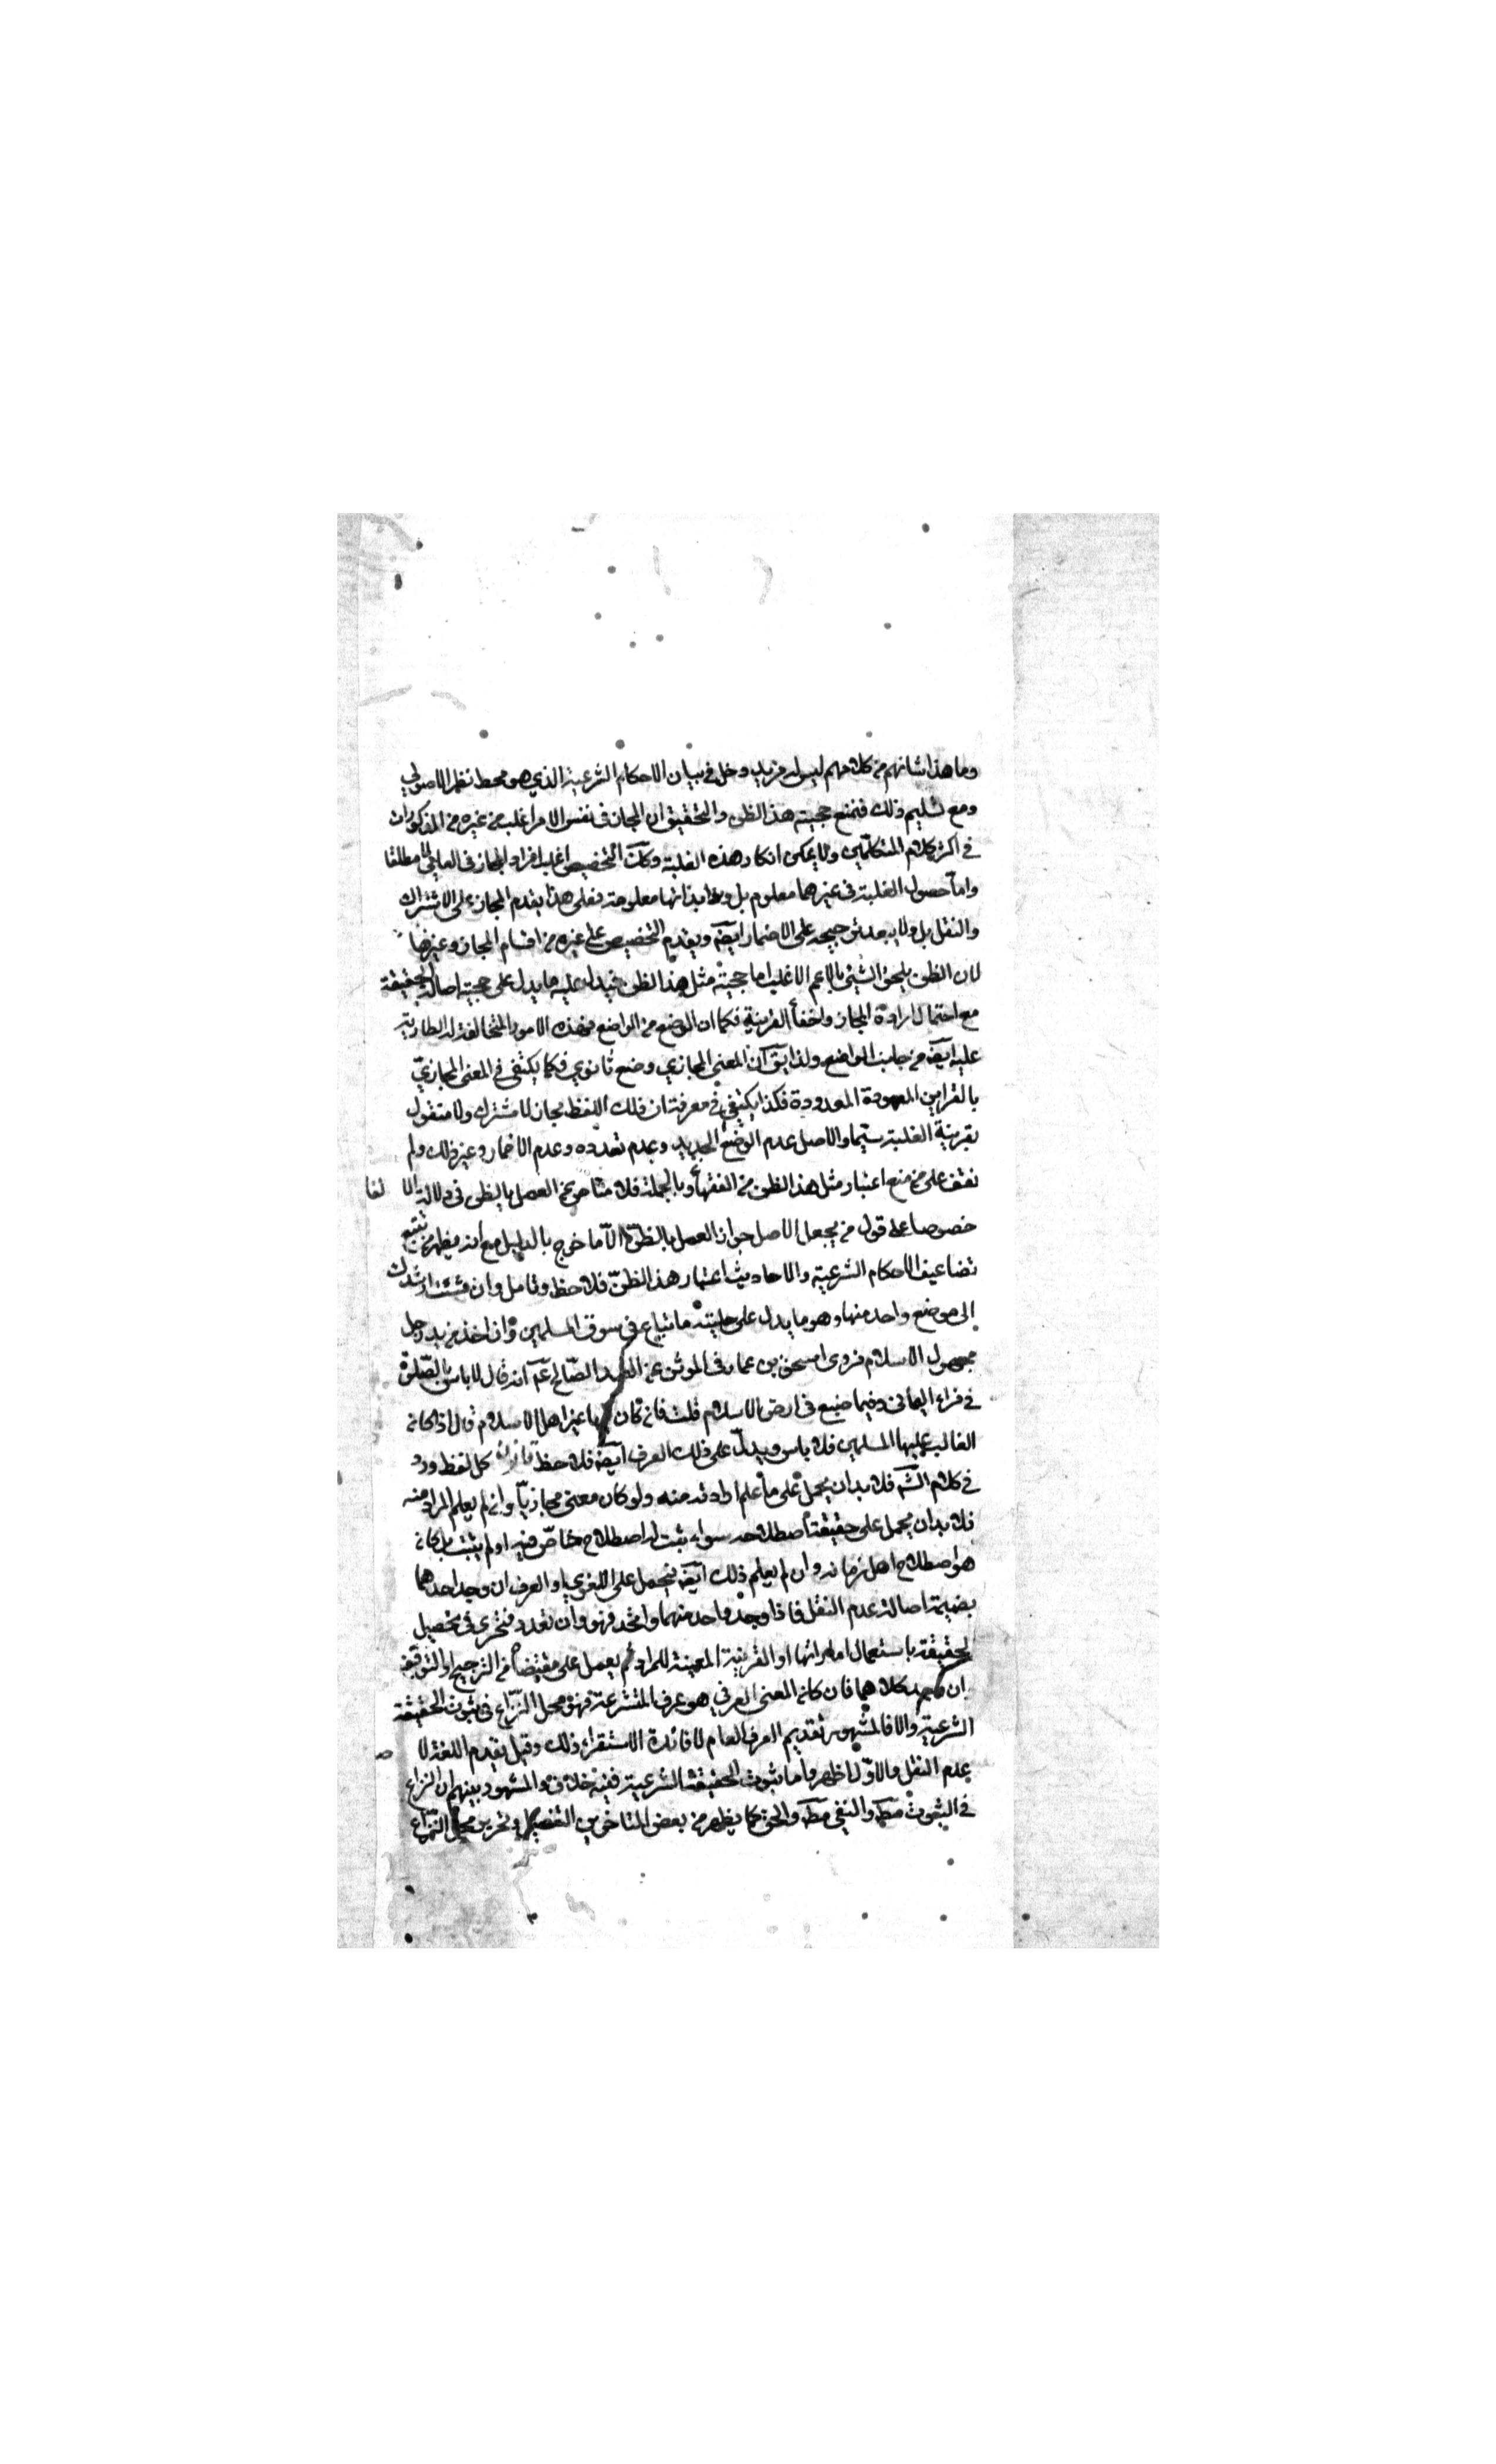 وما هذا شانهم من كلامهم ليس له مزيد دخل في بيان الاحكام الشرعية الذي هو محط نظر الاصولي
ومع تسليم ذلك فنمنع حجية هذا الظن والتحقيق ان المجاز في نفس الامر اغلب من غيره من المذكورات
في اكثر كلام المتكلمين ولا يمكن انكار هذه الغلبة وكك التخصيص اغلب افراد المجاز في العام لا مطلقا
واما حصول الغلبة في غيرهما معلوم بل و معلومة فعلى هذا يقدم المجاز على الاشتراك
والنقل بل ولا يبعد ترجيحه على الاضمار ايضه ويقدم التخصيص على غيره من اقسام المجاز وغيرها
لان الظن يلحق الشيئ بالاعم الاغلب اما حجية مثل هذا الظن فيدل عليه ما يدل على حجية اصالة الحقيقة
مع احتمال ارادة المجاز واخفأ القرينة فكما ان الوضع من الواضع فهذه الامور المخالفة له الطارية
عليه ايضه من جانب الواضع ولذا يق ان المعنى المجازي وضع ثانوي فكما يكتفى في المعنى المجازي
بالقراين المعهودة المعدودة فكذا يكتفى في معرفة ان ذلك اللفظ مجاز لا مشترك ولا منقول
بقرينة الغلبة سيما والاصل عدم الوضع الجديد وعدم تعدده وعدم الاضمار وغير ذلك ولم
نقف على من منع اعتبار مثل هذا الظن من الفقهأ وبالجملة فلا مناص عن العمل بالظن في دلالة الالفا
خصوصا على قول من يجعل الاصل جواز العمل بالظن الّا ما خرج بالدليل مع انه يظهر من تتبع
تضاعيف الاحكام الشرعية والاحاديث اعتبار هذا الظنّ فلاحظ وتامل وان شئت ارشدك
الى موضع واحد منها وهو ما يدل على حلية ما يباع في سوق المسلمين وان اخذ من يد رجل
مجهول الاسلام فروى اسحق بن عمار في الموثق عن العبد الصّالح عم انه قال لا باس بالصّلوة
في فراء اليماني وفيما صنع في ارض الاسلام قلت فان كان فيها غير اهل الاسلام قال اذا كان
الغالب عليها المسلمين فلا باس ويدلّ على ذلك العرف ايضه فلاحظ قانون كل لفظ ورد
في كلام الشه فلا بد ان يحمل على ما علم ارادته منه ولو كان معنى مجازيّا وان لم يعلم المراد منه
فلا بد ان يحمل على حقيقة اصطلاحه سواء ثبت له اصطلاح خاصّ فيه او لم يثبت بل كان
هو اصطلاح اهل زمانه وان لم يعلم ذلك ايضه فيحمل على اللغوي او العرف ان وجد احدهما
بضميمة اصالة عدم النقل فاذا وجد واحد منهما واتحد فهو وان تعدد فنتحرى في تحصيل
الحقيقة باستعمال اماراتها او القرينة المعينة للمراد ثم يعمل على مقتضاه من الترجيح او التوقف
ان وجد كلاهما فان كان المعنى العرفي هو عرف المتشرعة فهو محل النزاع في ثبوت الحقيقة
الشرعية والا فالمشهور تقديم العرف العام لافادة الاستقراء ذلك وقيل يقدم اللغة لا ص
عدم النقل والاوّل اظهر واما ثبوت الحقيقة الشرعية ففيه خلاف والمشهور بينهم ان النزاع
في الثبوت مطه والنفي مطه والحق كما يظهر من بعض المتاخرين التفصيل وتحرير محل النزاع